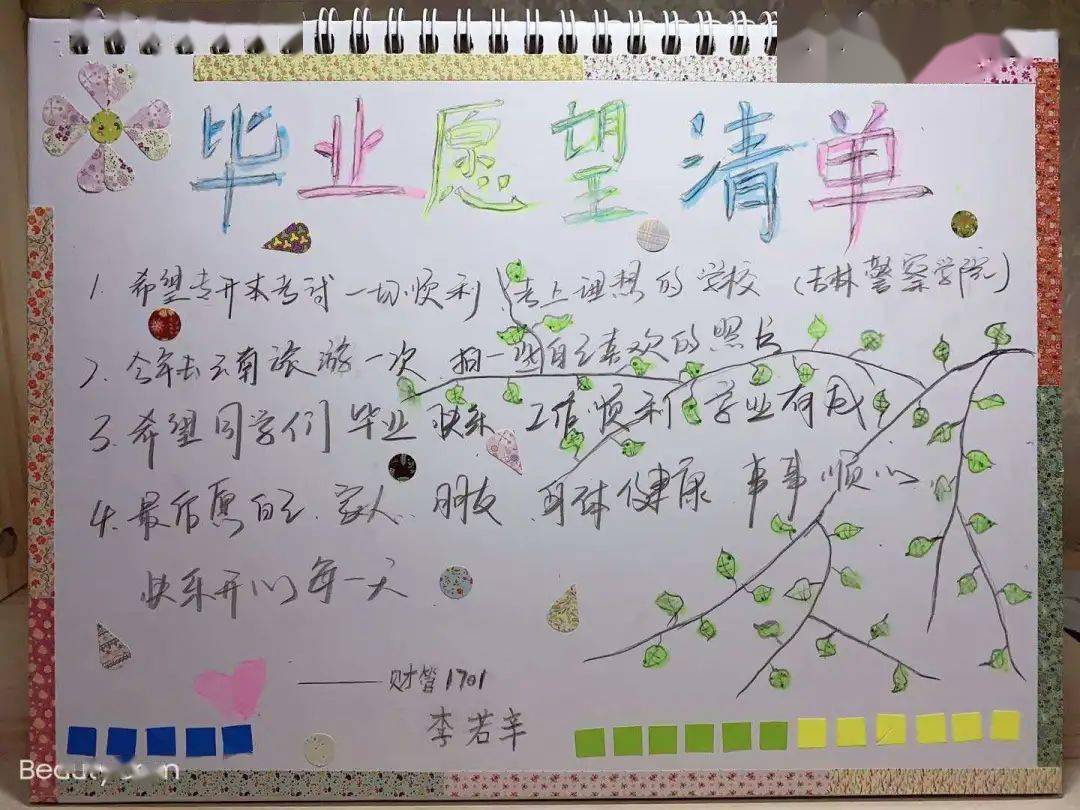 毕业愿望清单
1. 希望专升本考试一切顺利,考上理想的学校(吉林警察学院)
2. 今年去云南旅游一次 拍一些自己喜欢的照片
3. 希望同学们毕业快乐 工作顺利 学业有成
4. 最后愿自己、家人、朋友 身体健康 事事顺心
快乐开心每一天
——财管1701
李若辛